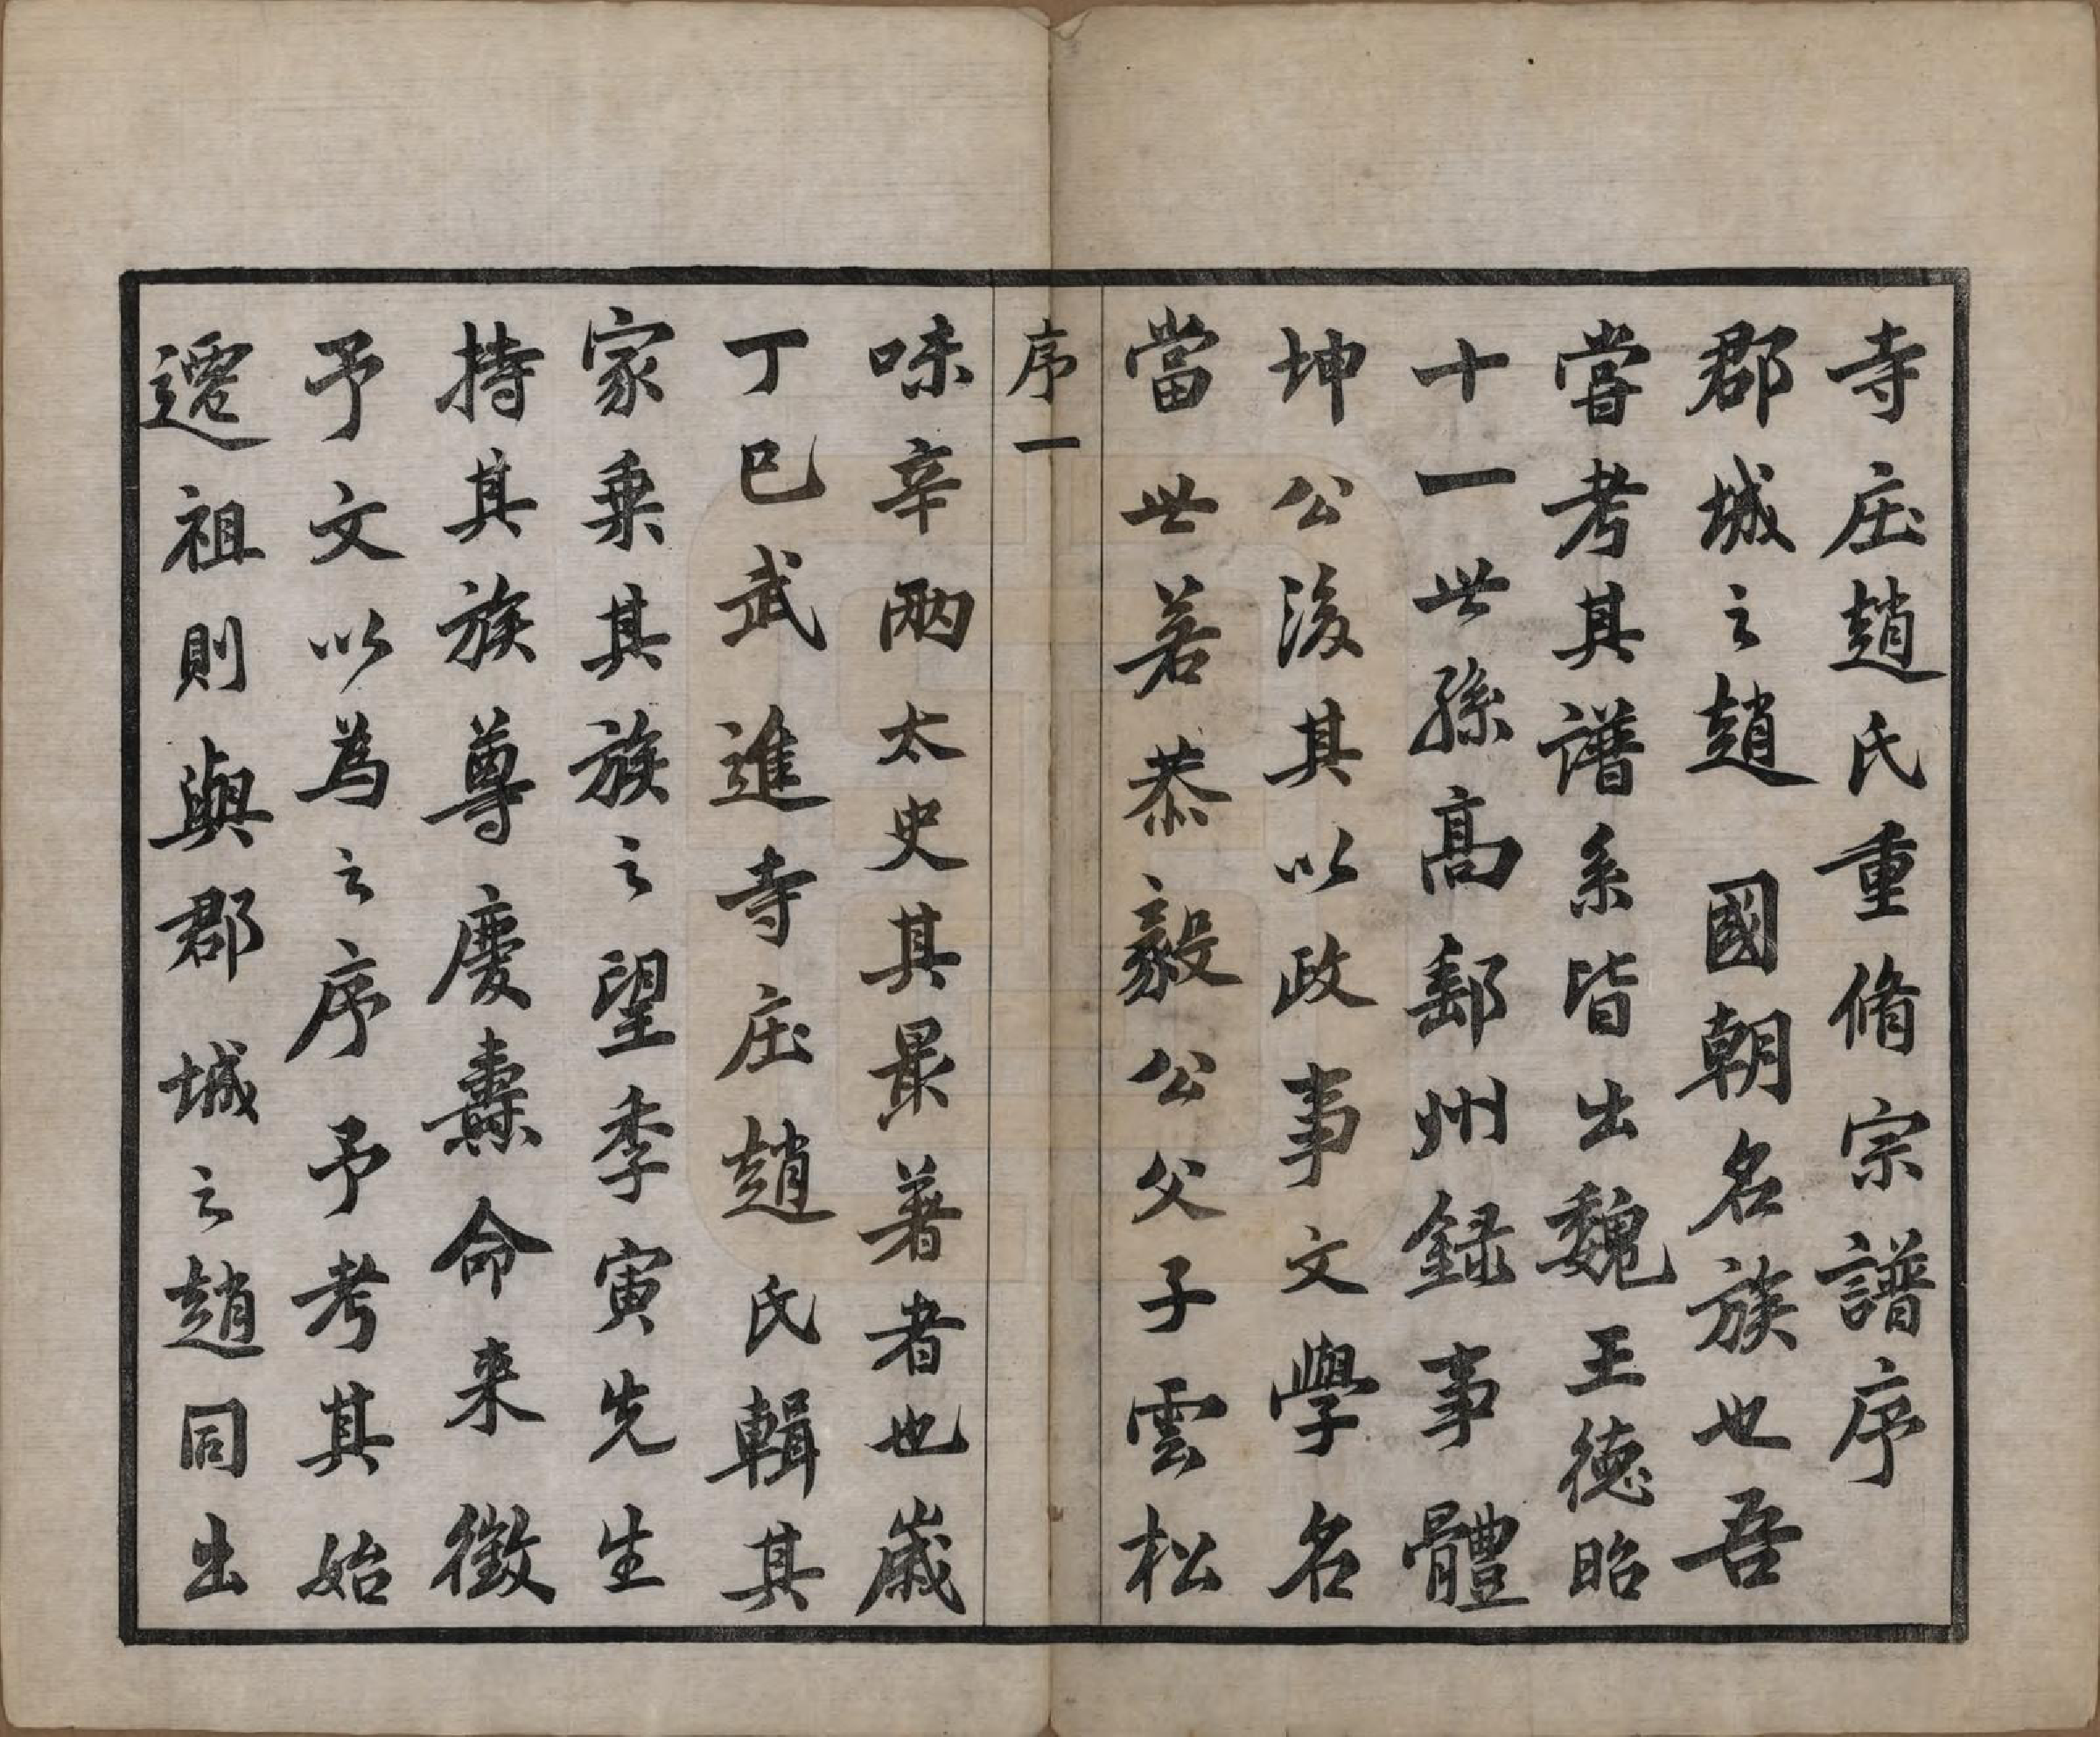 寺庄趙氏重脩宗譜序
郡城之趙 國朝名族也吾
嘗考其譜系皆出魏王德昭
十一世孫高郵州録事體
坤公後其以政事文學名
當世若恭毅公父子雲松
序一
味辛兩太史其最著者也歲
丁巳武進寺庄趙氏輯其
家乗其族之望季寅先生
持其族尊慶燾命来徵
予文以為之序予考其始
遷祖則與郡城之趙同出